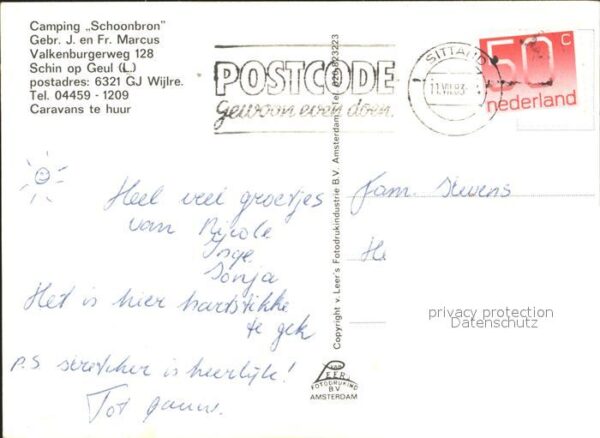 Camping „Schoonbron"
Gebr. J. en Fr. Marcus
Valkenburgerweg 128
Schin op Geul (L.)
postadres: 6321 GJ Wijlre.
Tel. 04459 - 1209
Caravans te huur
POSTCODE
gewoon even doen.
SITTARD
11.VII.83
50 c
nederland
Copyright v. Leer's Fotodrukindustrie B.V. Amsterdam, Tel. 020-823223
Heel veel groetjes
van Nicole
Inge
Sonja
Het is hier hartstikke
te gek
P.S stretcher is heerlijk!
Tot gauw.
Fam. Stevens
He
privacy protection
Datenschutz
VAN
LEER
FOTODRUKIND
B.V.
AMSTERDAM